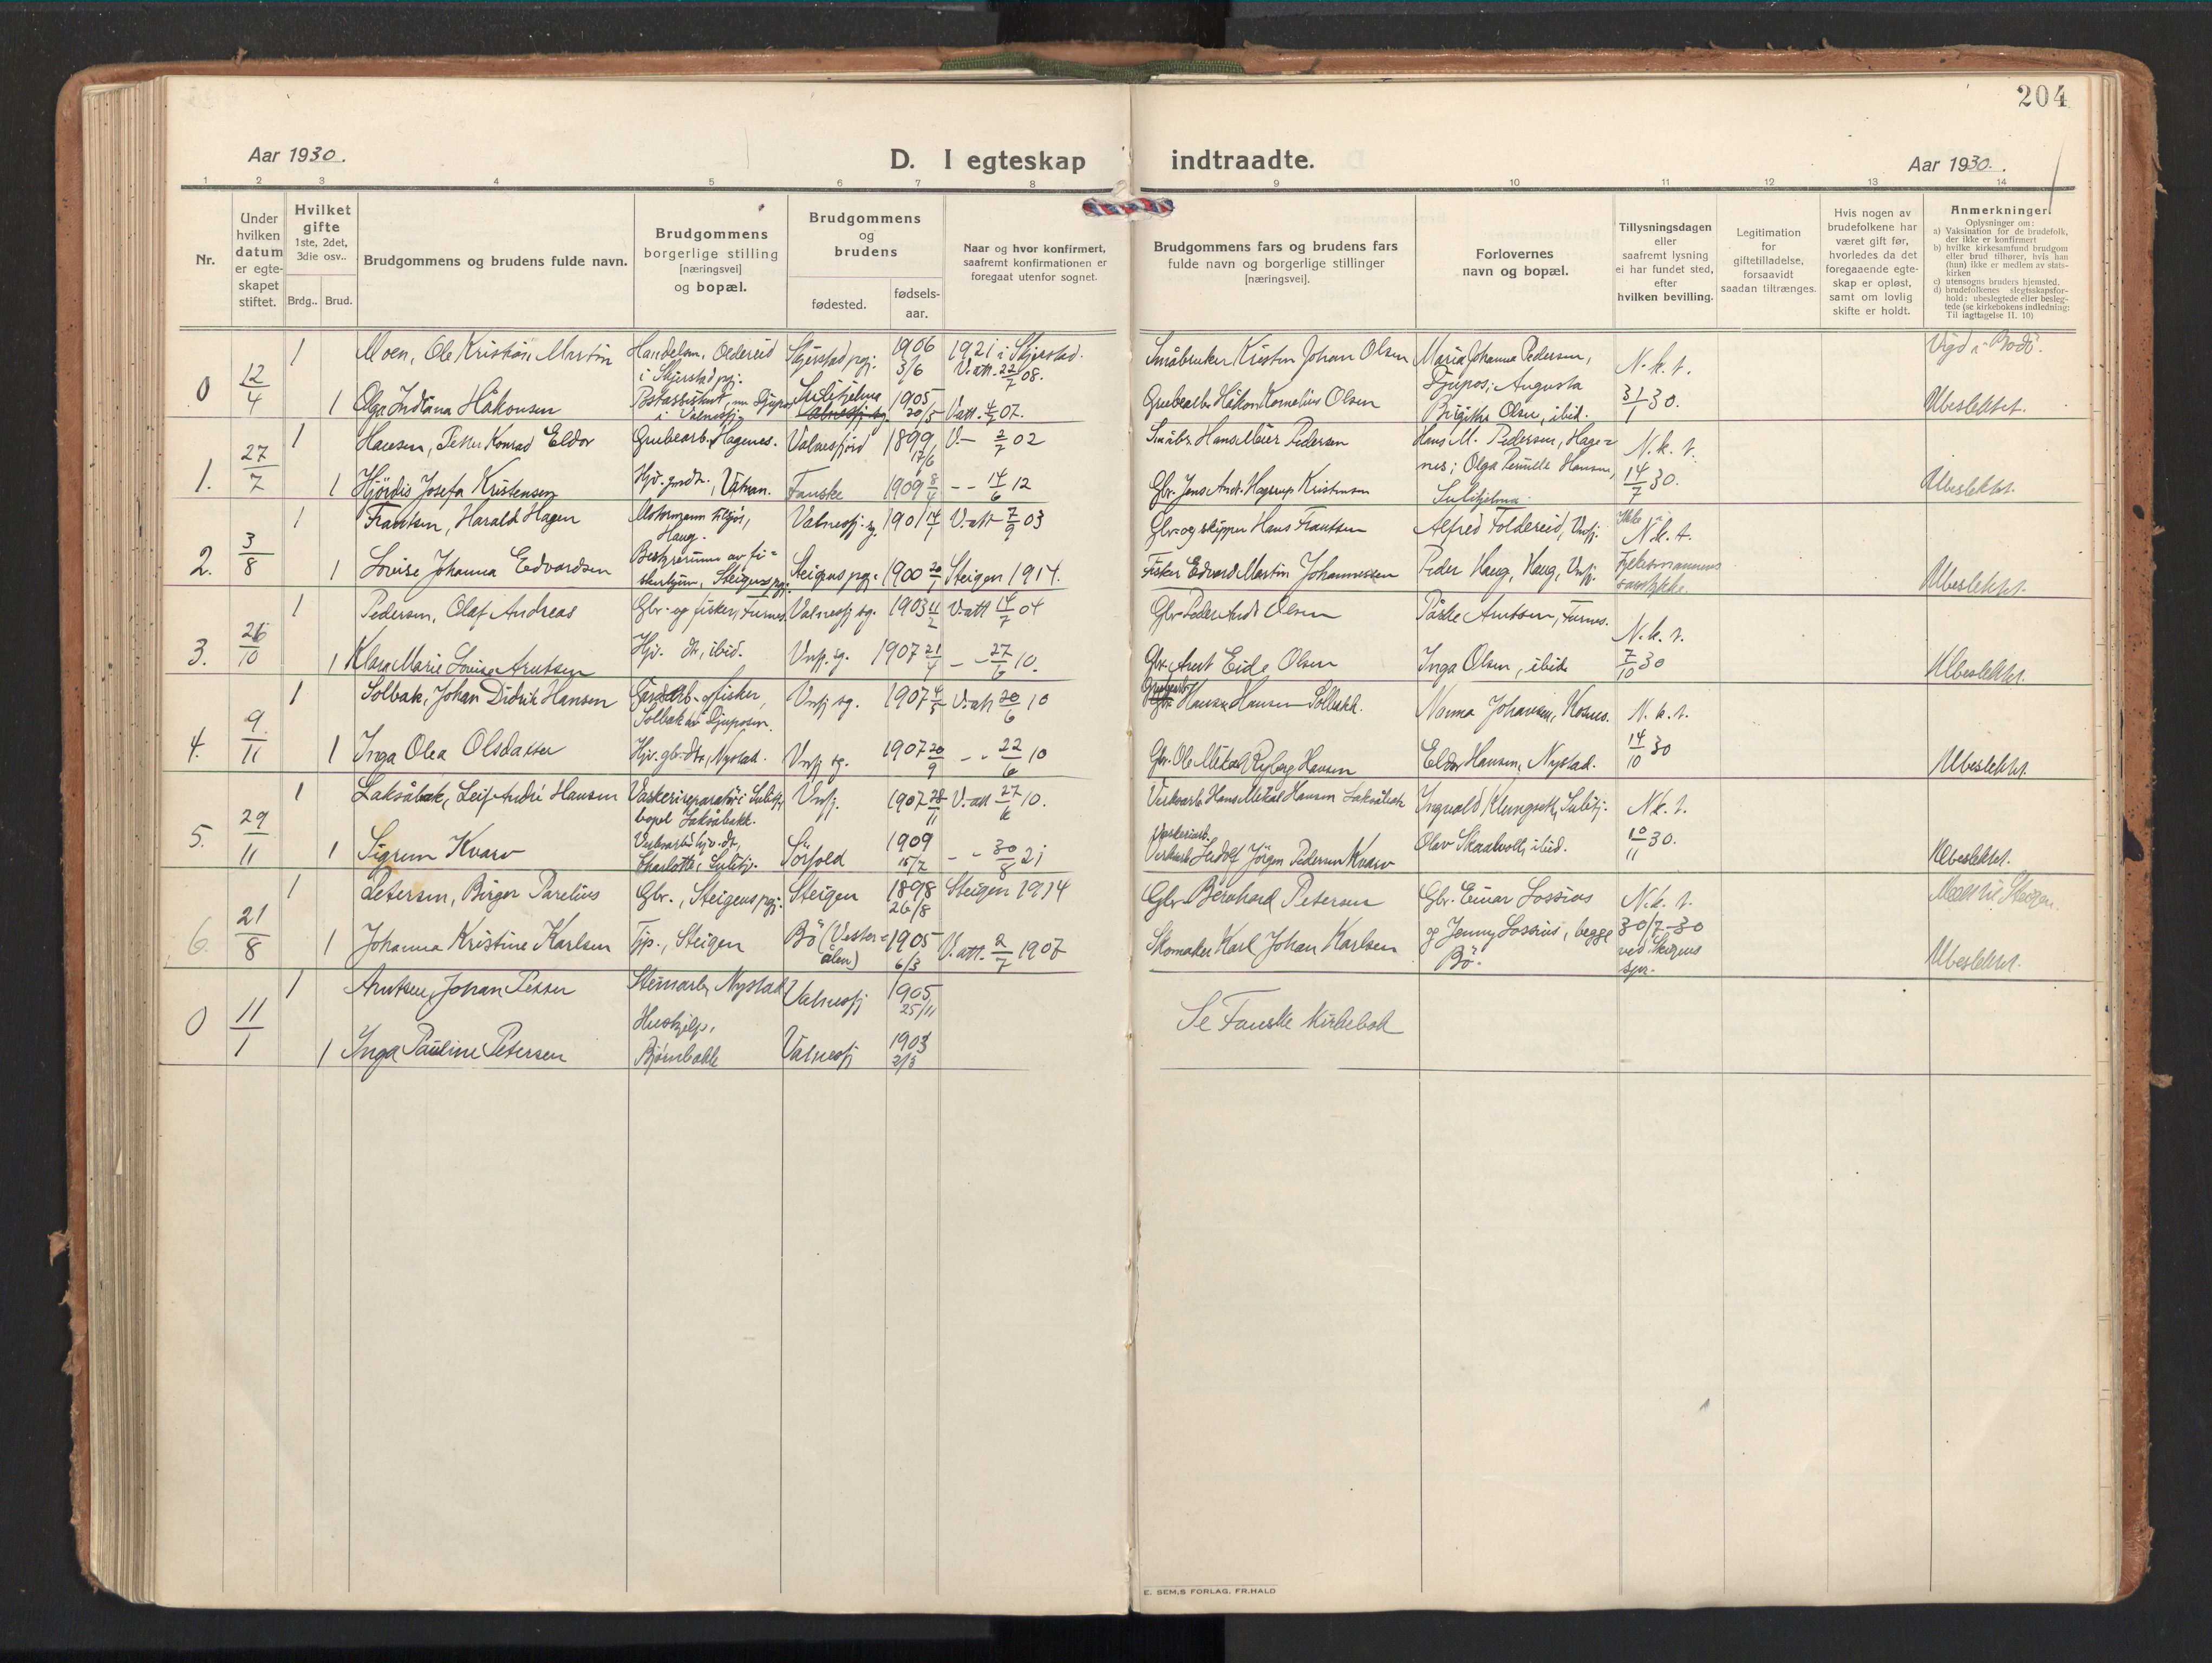 204
Aar 1930.
D. I egteskap indtraadte.
Aar 1930.
1 2 3 4 5 6 7 8 9 10 11 12 13 14
Nr.
Under
hvilken
datum
er egte-
skapet
stiftet.
Hvilket
gifte
1ste, 2det,
3die osv..
Brdg.. Brud.
Brudgommens og brudens fulde navn.
Brudgommens
borgerlige stilling
[næringsvei]
og bopæl.
Brudgommens
og
brudens
fødested.
fødsels-
aar.
Naar og hvor konfirmert,
saafremt konfirmationen er
foregaat utenfor sognet.
Brudgommens fars og brudens fars
fulde navn og borgerlige stillinger
[næringsvei].
Forlovernes
navn og bopæl.
Tillysningsdagen
eller
saafremt lysning
ei har fundet sted,
efter
hvilken bevilling.
Legitimation
for
giftetilladelse,
forsaavidt
saadan tiltrænges.
Hvis nogen av
brudefolkene har
været gift før,
hvorledes da det
foregaaende egte-
skap er opløst,
samt om lovlig
skifte er holdt.
Anmerkninger.
Oplysninger om:
a) Vaksination for de brudefolk,
der ikke er konfirmert
b) hvilke kirkesamfund brudgom
eller brud tilhører, hvis han
(hun) ikke er medlem av stats-
kirken
c) utensogns bruders hjemsted.
d) brudefolkenes slegtsskapsfor-
hold: ubeslegtede eller besleg-
tede (se kirkebokens indledning:
Til iagttagelse II. 10)
0 12/4
1 Moen, Ole Kristian Martin
Handelsm. Oldereid
i Skjerstad pgj.
Skjerstad pgj. 1906 3/6
1921 i Skjerstad.
V. att. 22/7 08.
Småbruker Kristen Johan Olsen
Maria Johanna Pedersen,
Djupos; Augusta
N. k. t.
Vigd i Bodö.
1 Olga Indiana Håkonsen
Sulitjelma 1905 20/5
V. att. 4/7 07.
Grubearb. Håkon Kornelius Olsen
Birgitte Olsen, ibid.
31/1 30.
Ubeslektet.
1. 27/7
1 Hansen, Petter Konrad Eldor
Grubearb. Hagenes.
Valnesfjord 1899 17/6
V. — 2/7 02
Småbr. Hans Meier Pedersen
Hans M. Pedersen, Hage=
nes; Olga Pernille Hansen,
N. k. t.
1 Hjördis Josefa Kristensen
Hjv. gmdtr., Vatnan.
Fauske 1909 8/4
- - 14/6 12
Gbr. Jens Andr. Hagerup Kristensen
Sulitjelma.
14/7 30.
Ubeslektet.
2. 3/8
1 Frantsen, Harald Hagen
Haug.
Valnesfj. sg. 1901 14/7
V. att. 7/9 03
Gbr. og skipper Hans Frantsen
Alfred Foldereid, Vnsfj.
N. k. t.
1 Lovise Johanna Edvardsen
Bestyrerinne av fi=
skerhjem, Steigens pgj.
Steigens pgj. 1900 20/1
Steigen 1914.
Fisker Edvard Martin Johannessen
Peder Haug, Haug, Vnsfj.
Ubeslektet.
3. 26/10
1 Pedersen, Olaf Andreas
Gbr. og fisker, Furnes.
Valnesfj. sg. 1903 4/2
V. att 14/7 04
Gbr. Peder Andr. Olsen
Påske Arntsen, Furnes.
N. k. t.
1 Klara Marie Lovise Arntsen
Hjv. dtr., ibid.
Vnsfj. sg. 1907 21/4
- - 27/6 10.
Gbr. Arnt Eide Olsen
Inga Olsen, ibid.
7/10 30
Ubeslektet.
4. 9/11
1 Solbak, Johan Didrik Hansen
Gårdarb. og fisker,
Solbakk i Djuposen.
Vnsfj. sg. 1907 4/5
V. att 20/6 10
Hansen Solbakk.
Norma Johansen, Kosmo.
N. k. t.
1 Inga Olea Olsdatter
Hjv. gbr. dtr., Nystad.
Vnsfj. sg. 1907 20/9
- - 22/6 10
Gbr. Ole Mikal Ryberg Hansen
Eldor Hansen, Nystad.
14/10 30
Ubeslektet.
5. 29/11
1 Laksåbak, Leif André Hansen
Vaskerireparatör i Sulitj.
bopel Laksåbakk.
Vnsfj. 1907 28/11
V. att 27/6 10.
Verksarb. Hans Mikal Hansen Laksåbakk
Ingvald Klungseth, Sulitj.
N. k. t.
1 Sigrun Kvarv
Verksarb. hjv. dtr.,
Charlotta, Sulitj.
Sörfold 1909 15/7
- - 30/8 21
Vaskeriarb.
Ludolf Jörgen Pedersen Kvarv
Olav Skaalvoll, ibid.
10/11 30.
Ubeslektet.
6. 21/8
1 Petersen, Birger Parelius
Gbr., Steigens pgj.
Steigen 1898 26/8
Steigen 1914
Gbr. Bernhard Petersen
Gbr. Einar Lossius
N. k. t.
Meldt til Steigen.
1 Johanna Kristine Karlsen
Tjp., Steigen
Bö (Vester=
ålen) 1905 6/3
V. att. 2/7 1907
Skomaker Karl Johan Karlsen
og Jenny Lossius, begge
Bö.
30/7-30
ved Steigens
spr.
Ubeslektet.
0 11/1
1 Arntsen, Johan Petter
Stenarb., Nystad
Valnesfj 1905 25/11
Se Fauske kirkebok
1 Inga Pauline Petersen
Hushjelp,
Bjørnbakk
Valnesfj 1903 2/3
E. SEM,S FORLAG, FR.HALD